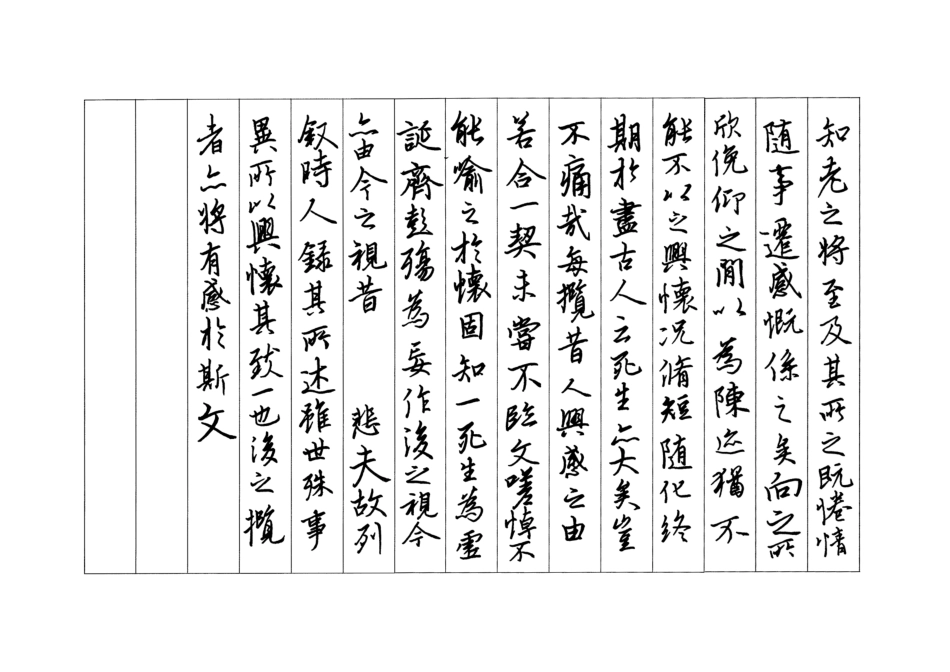 知老之將至及其所之既惓情
随事遷感慨係之矣向之所
欣俛仰之閒以為陳迹猶不
能不以之興懷况脩短随化終
期於盡古人云死生亦大矣豈
不痛哉每攬昔人興感之由
若合一契未嘗不臨文嗟悼不
能喻之於懷固知一死生為虛
誕齊彭殤為妄作後之視今
亦由今之視昔　悲夫故列
叙時人錄其所述雖世殊事
異所以興懷其致一也後之攬
者亦將有感於斯文